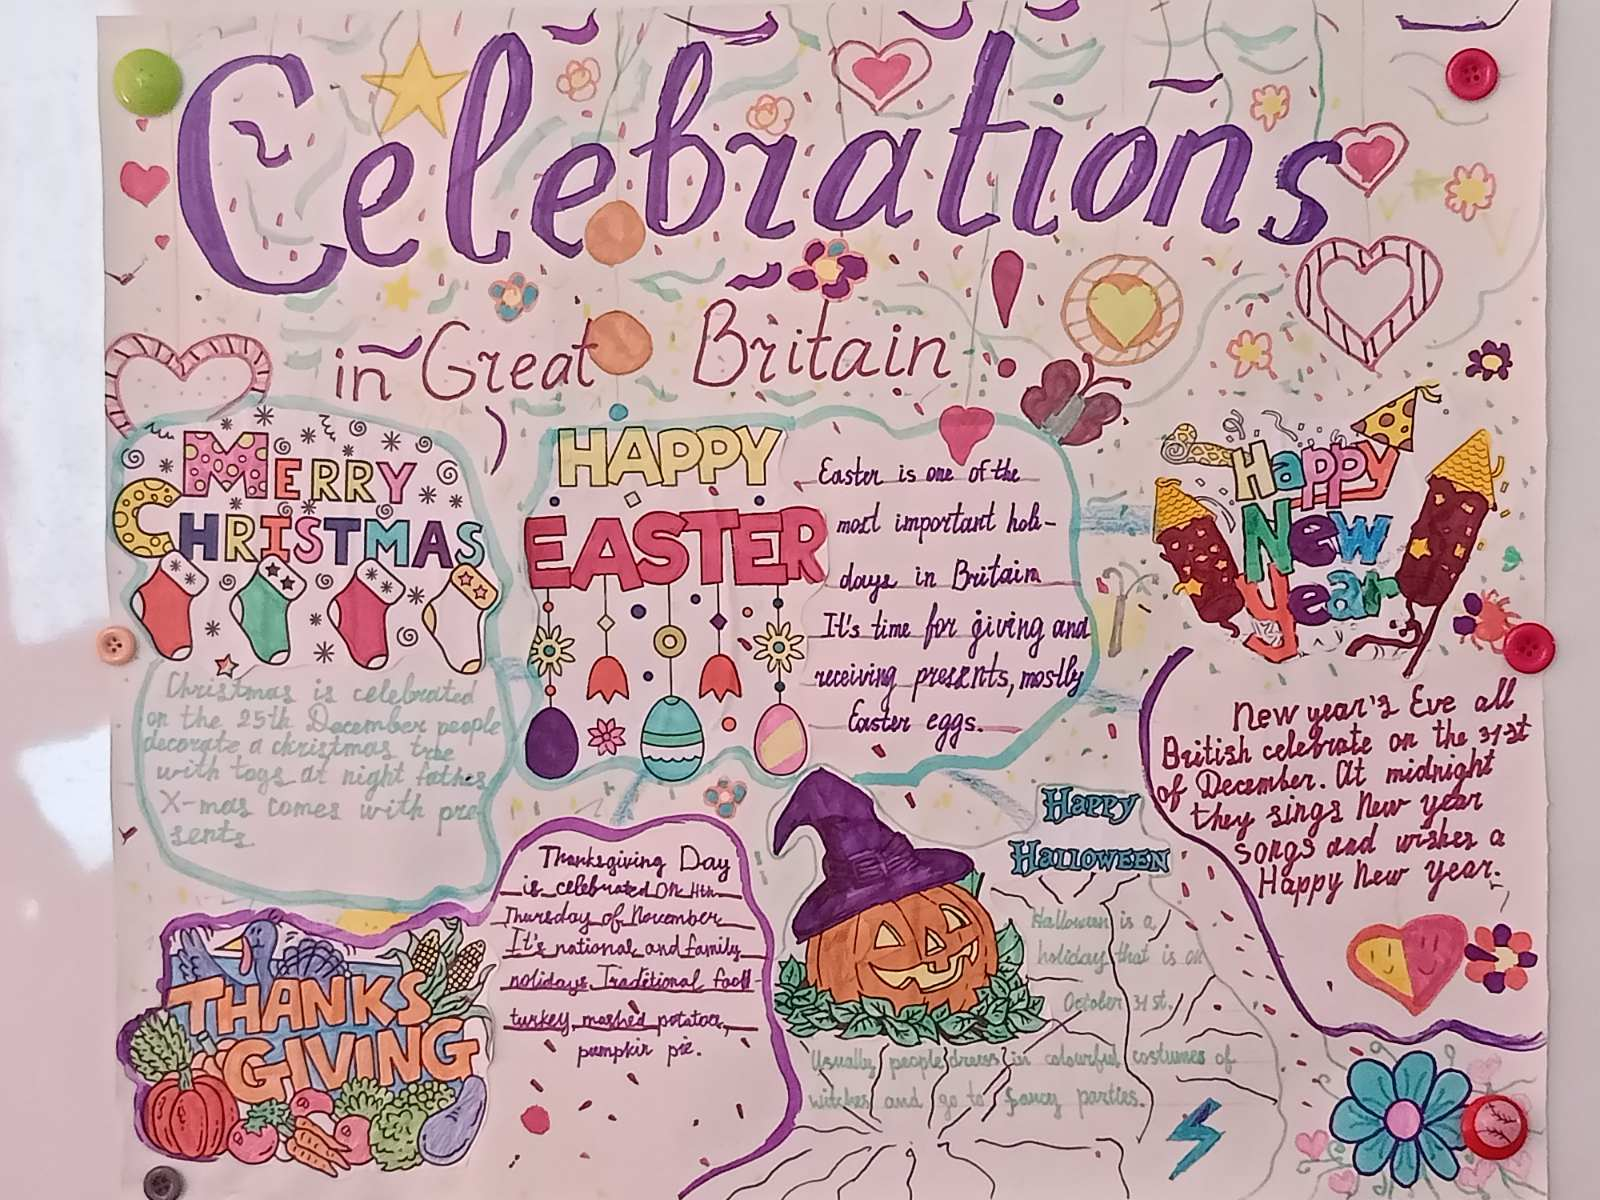 Celebrations
in Great Britain
MERRY
CHRISTMAS
Christmas is celebrated
on the 25th December people
decorate a christmas tree
with toys at night father
X-mas comes with pre-
sents
HAPPY
EASTER
Easter is one of the
most important holi-
days in Britain
It's time for giving and
receiving presents, mostly
Easter eggs.
Happy
New
Year
New year's Eve all
British celebrate on the 31st
of December. At midnight
they sings New year
songs and wishes a
Happy New Year.
THANKS
GIVING
Thanksgiving Day
is celebrated on 4th
Thursday of November
It's national and family
holidays Traditional food-
turkey, mashed potatoes,
pumpkin pie.
Happy
Halloween
Halloween is a
holiday that is on
October 31st.
Usually people dress in colourful costumes of
witches and go to fancy parties.